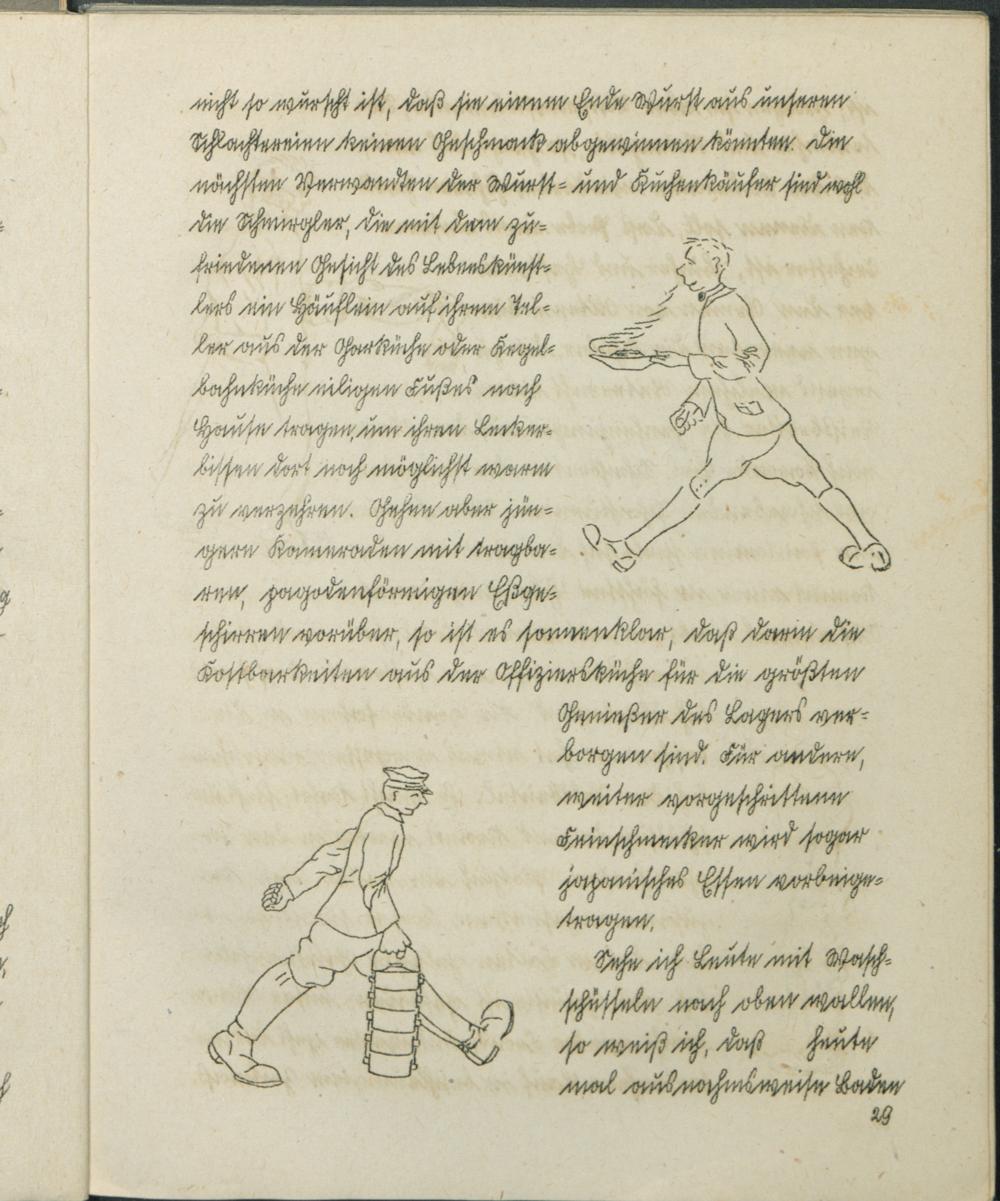 nicht so wurscht ist, daß sie einem Ende Wurst aus unseren
Schlachtereien keinen Geschmack abgewinnen könnten. Die
nächsten Verwandten der Wurst= und Kuchenkäufer sind wohl
die Schmirgler, die mit dem zu=
friedenen Gesicht des Lebenskünst=
lers ein Häuflein auf ihrem Tel=
ler aus der Garküche oder Kegel=
bahnküche eiligen Fußes nach
Hause tragen, um ihren Lecker=
bissen dort noch möglichst warm
zu verzehren. Gehen aber jün=
gere Kameraden mit tragba=
ren, pagodenförmigen Eßge=
schirren vorüber, so ist es sonnenklar, daß darin die
Kostbarkeiten aus der Offiziersküche für die größten
Genießer des Lagers ver=
borgen sind. Für andere,
weiter vorgeschrittene
Feinschmecker wird sogar
japanisches Essen vorbeige=
tragen.
Sehe ich Leute mit Wasch=
schüsseln nach oben wallen,
so weiß ich, daß heute
mal ausnahmsweise Baden
29